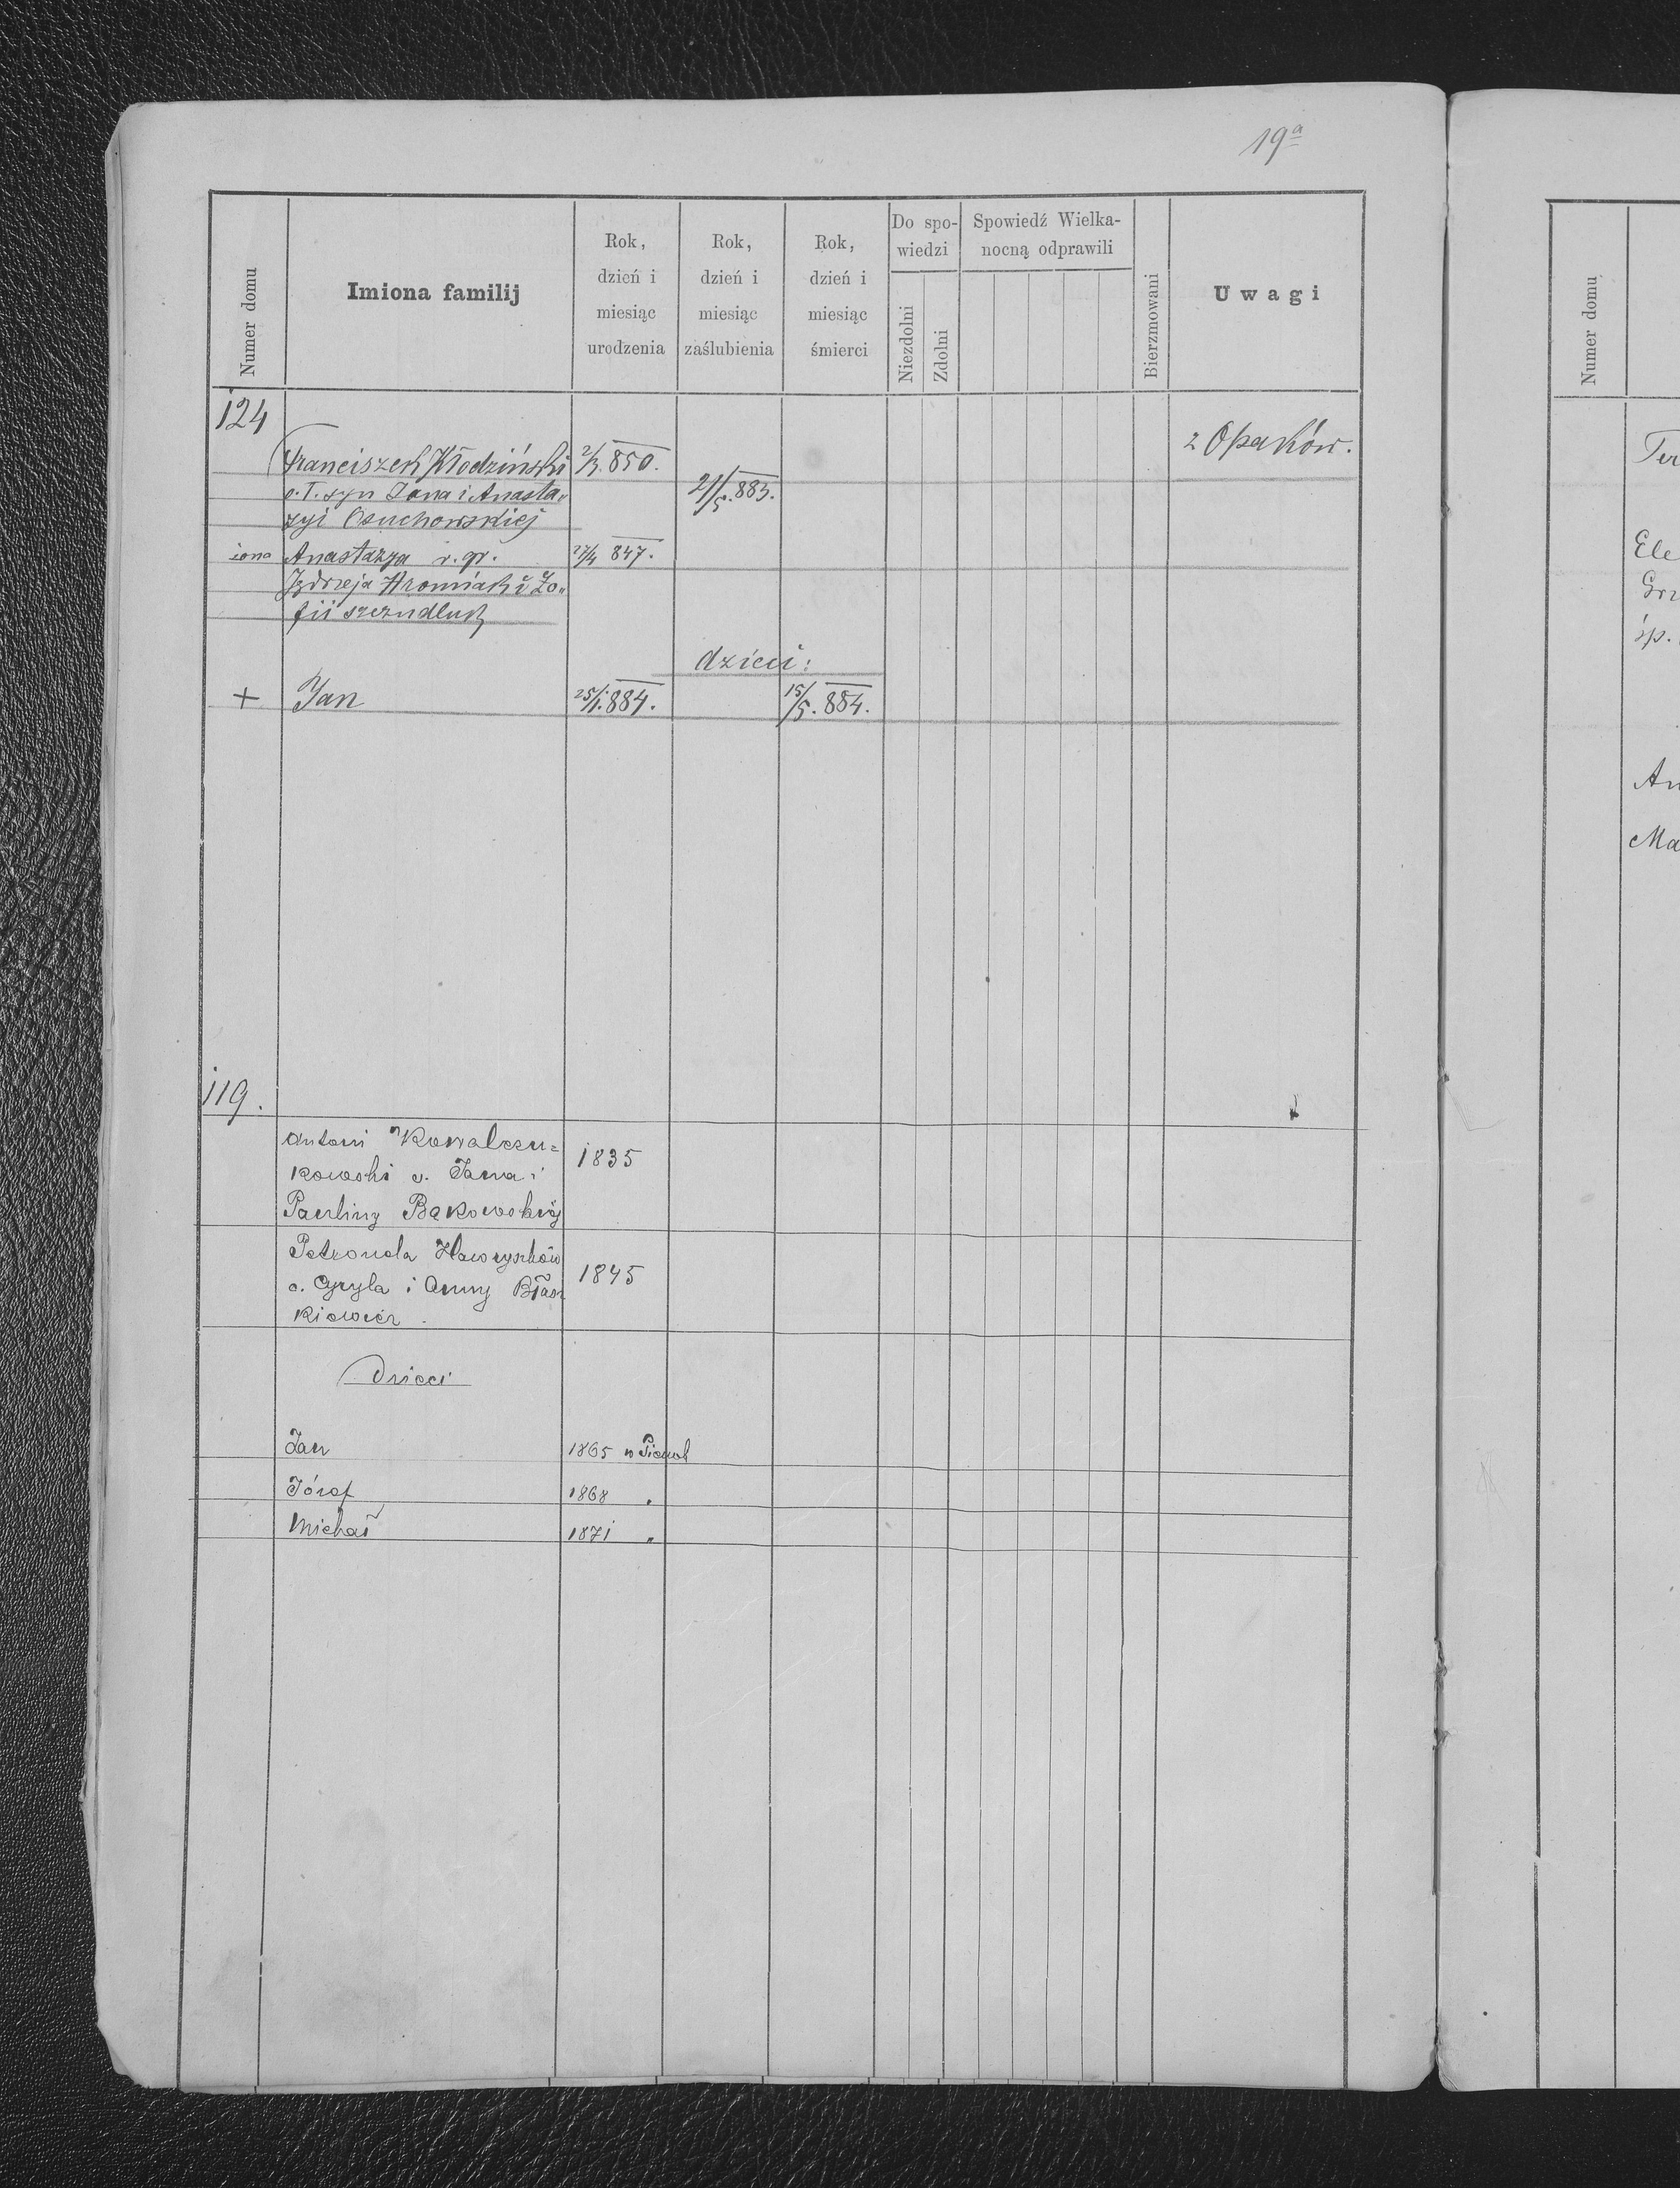 19a
Numer domu
Imiona familij
Rok,
dzień i
miesiąc
urodzenia
Rok,
dzień i
miesiąc
zaślubienia
Rok,
dzień i
miesiąc
śmierci
Do spo-
wiedzi
Niezdolni
Zdolni
Spowiedź Wielka-
nocną odprawili
Bierzmowani
Uwagi
124
Franciszek Kłodziński 2/3. 850. z Opaków.
o. T. syn Jana i Anasta„ 21/5. 883.
zyi Osuchowskiej
żona Anastazya r. gr. 27/4 847.
Jędrzeja Hromiak i Zo„
fii szezudluk
dzieci:
+ Jan 25/1. 884. 15/5. 884.
119.
Antoni Kowalczu=
kowski s. Jana i 1835
Pauliny Bąkowskiéj
Petronela Hawryszków
c. Cyryla i Anny Błaz 1845
kiewicz.
Dzieci
Jan 1865 w
Józef 1868 „
Michał 1871 „
Numer domu
Ter
Ele
Grz
śp.
An
Ma